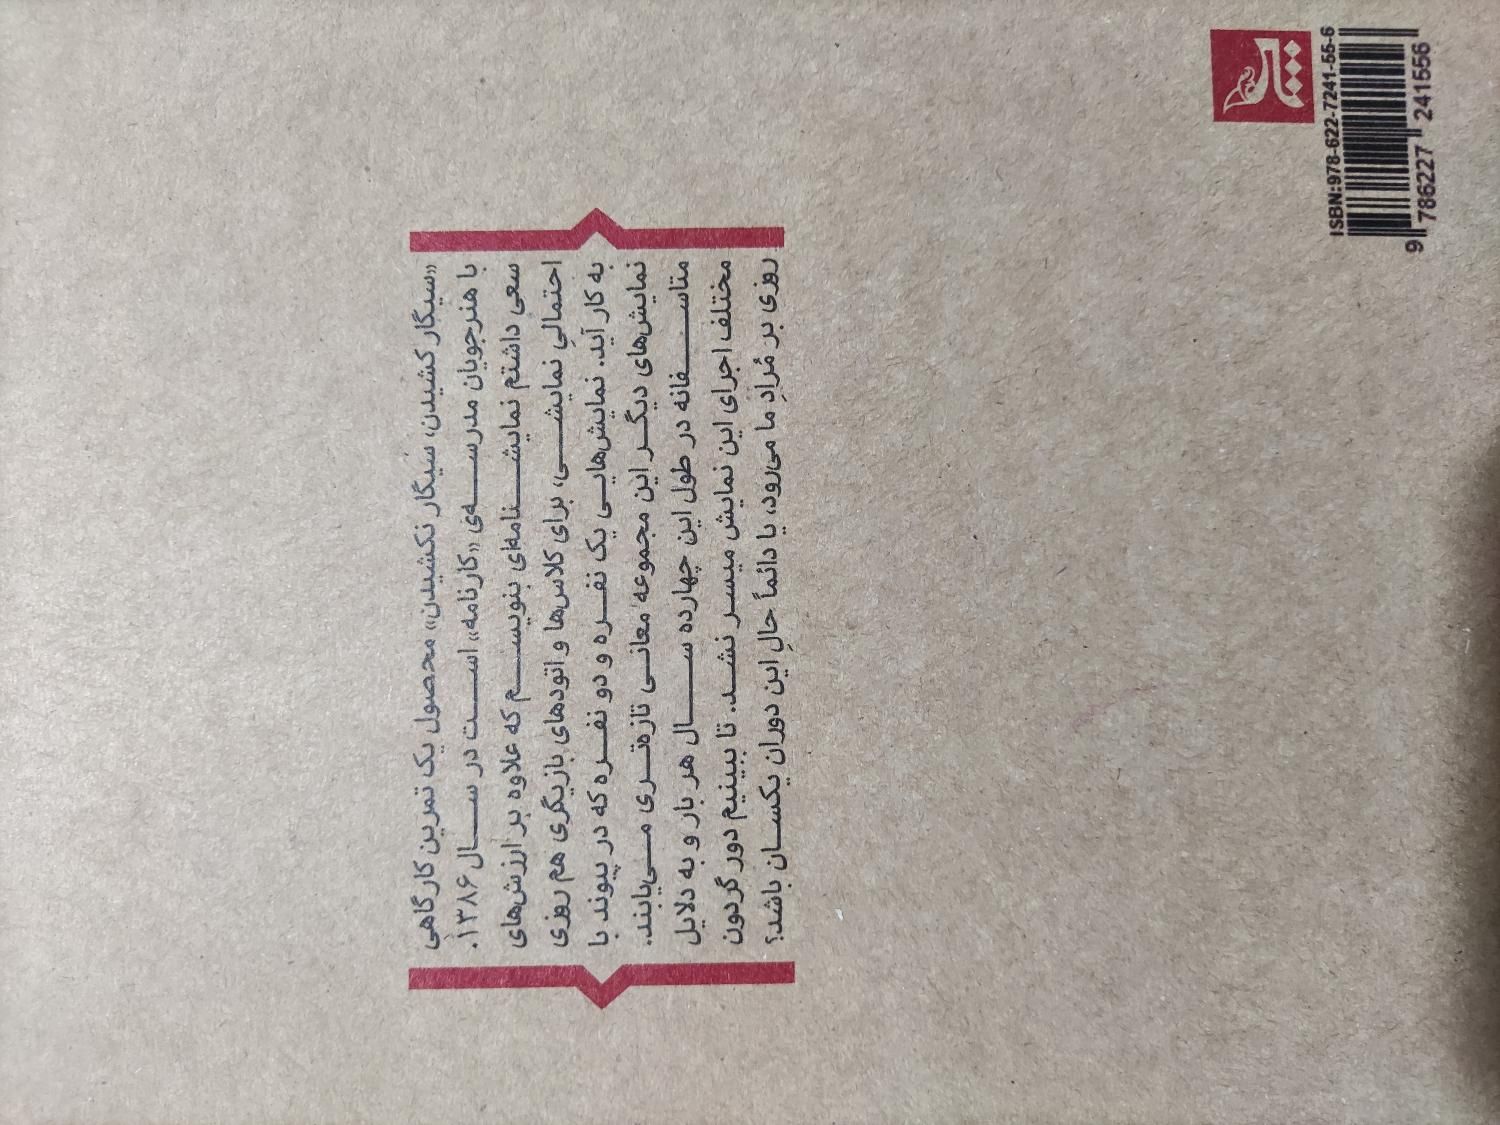 «سیگار کشیدن، سیگار نکشیدن» محصول یک تمرین کارگاهیِ
با هنرجویان مدرسه‌ی «کارنامه» است در سال ۱۳۸۶.
سعی داشتم نمایشنامه‌ای بنویسم که علاوه بر ارزش‌های
احتمالیِ نمایشی، برای کلاس‌ها و اتودهای بازیگری هم روزی
به کار آید. نمایش‌هایی یک نفره و دو نفره که در پیوند با
نمایش‌های دیگر این مجموعه معانی تازه‌تری می‌یابند.
متاسفانه در طول این چهارده سال هر بار و به دلایل
مختلف اجرای این نمایش میسر نشد. تا ببینیم دور گردون
روزی بر مُرادِ ما می‌رود، یا دائماً حالِ این دوران یکسان باشد؟
ISBN:978-622-7241-55-6
9 786227 241556